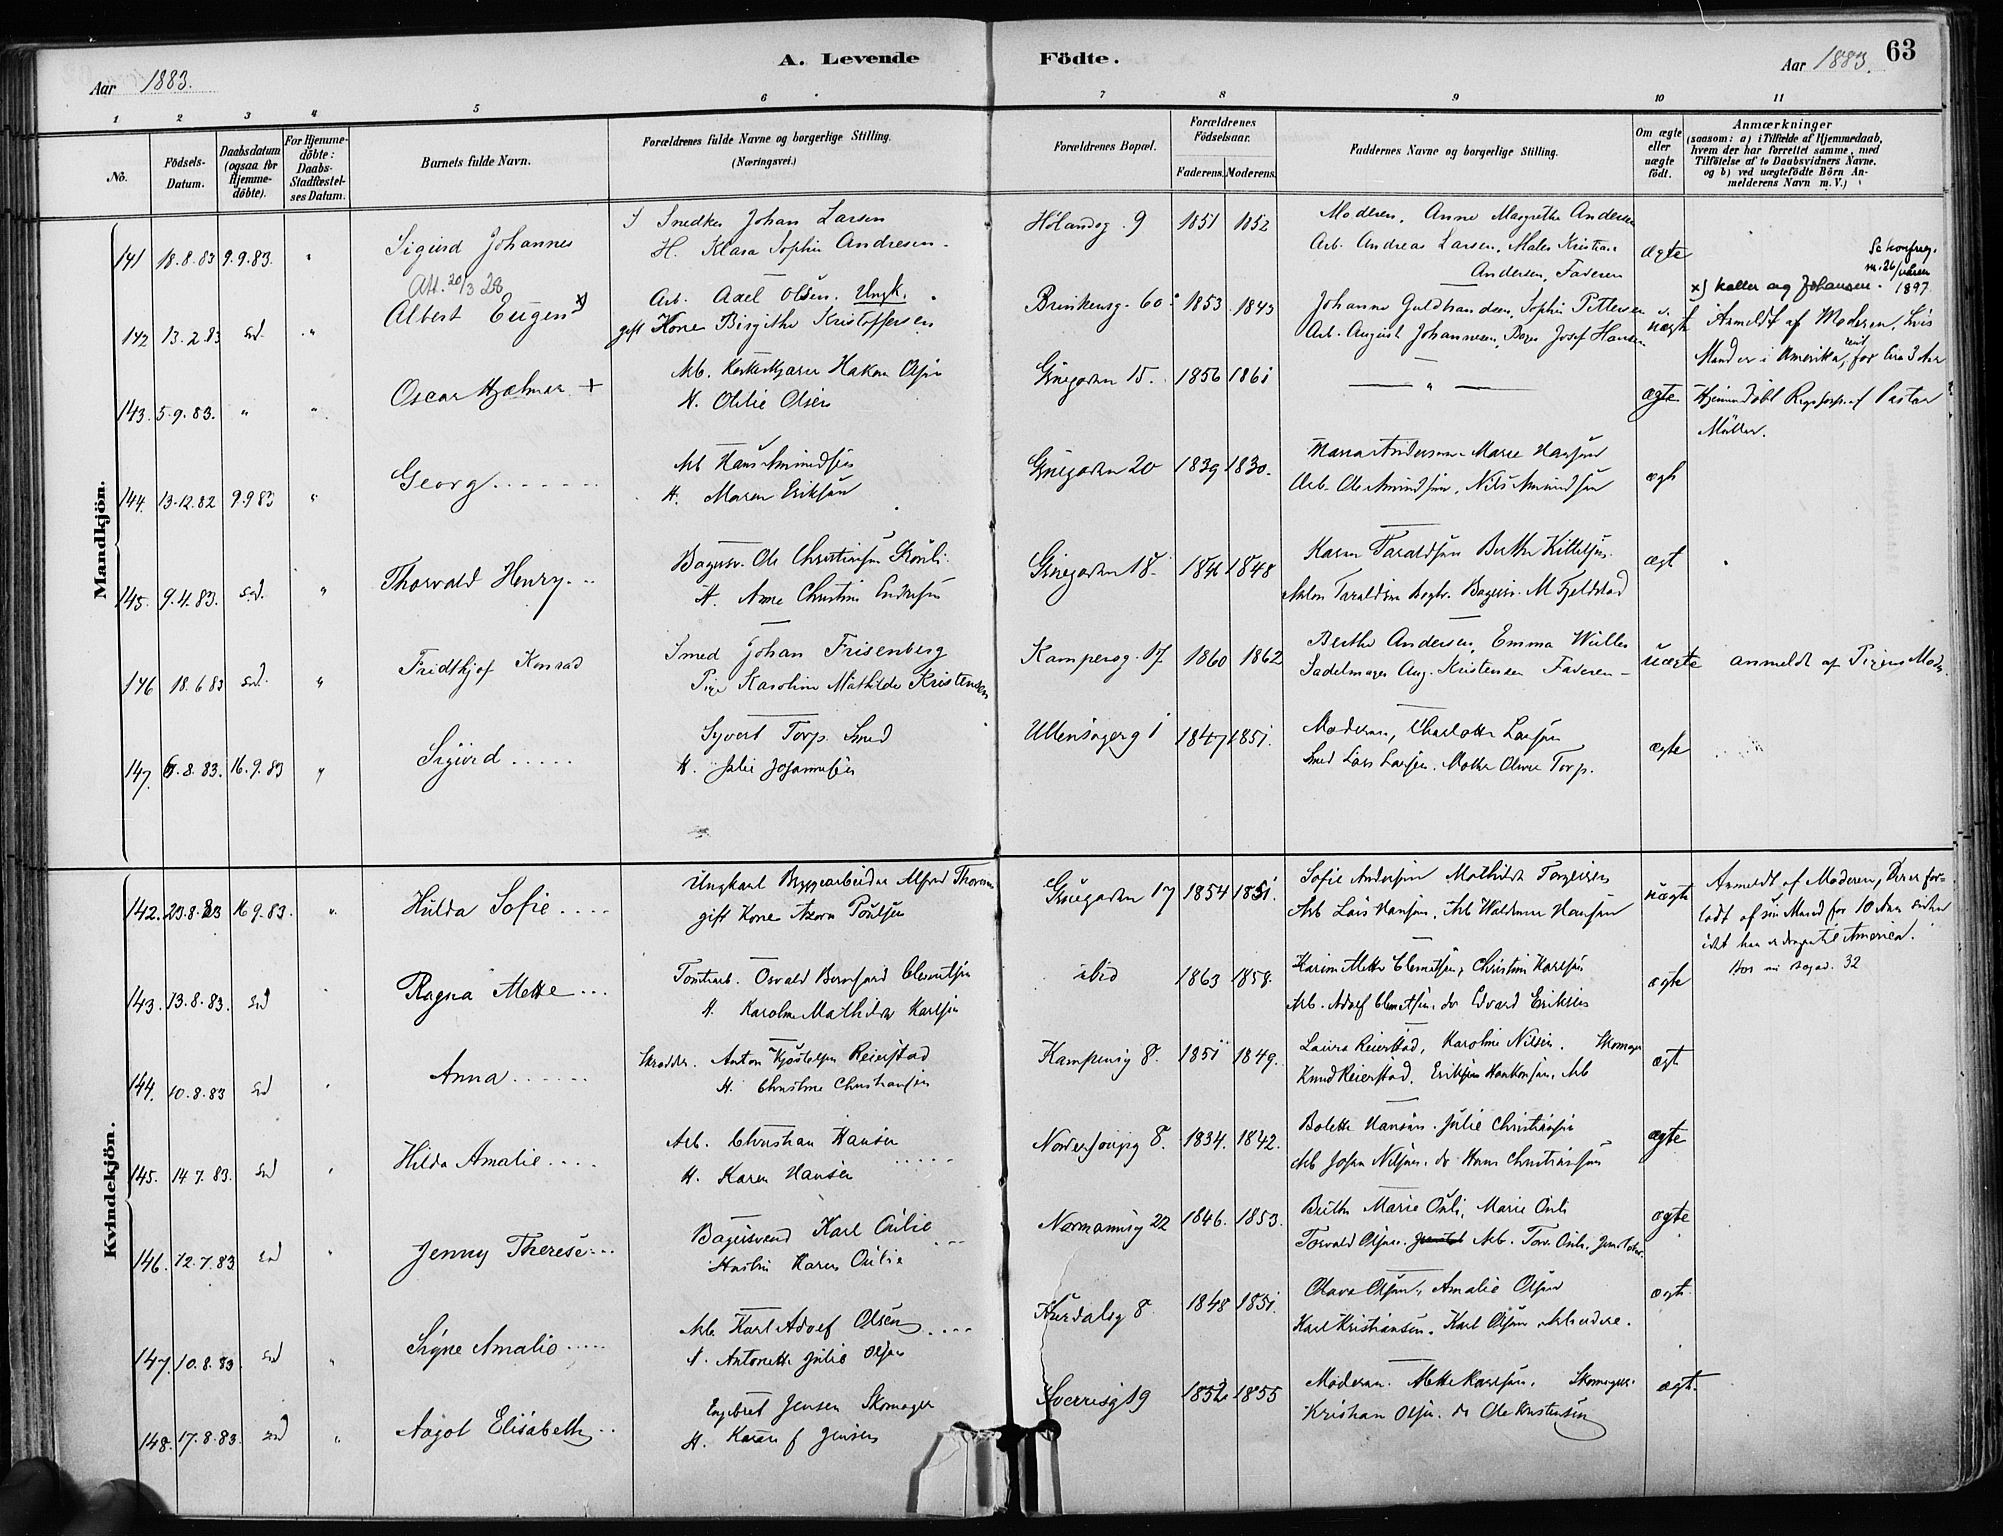 Aar 1883.
A. Levende
Födte.
Aar 1883.
63
1 2 3 4 5 6 7 8 9 10 11
No.
Födsels-
Datum.
Daabsdatum
(ogsaa for
Hjemme-
döbte).
For Hjemme-
döbte:
Daabs-
Stadfæstel-
ses Datum.
Barnets fulde Navn.
Forældrenes fulde Navne og borgerlige Stilling.
(Næringsvei.)
Forældrenes Bopæl.
Forældrenes
Födselsaar.
Faderens. Moderens.
Faddernes Navne og borgerlige Stilling.
Om ægte
eller
uægte
födt.
Anmærkninger
(saasom: a) i Tilfælde af Hjemmedaab,
hvem der har forrettet samme, med
Tilföielse af to Daabsvidners Navne.
og b) ved uægtefödte Börn An-
melderens Navn m. V.)
Mandkjön.
141 18.8.83 9.9.83. " Sigurd Johannes
Snedker Johan Larsen
H. Klara Sophie Andresen
Hølandsg. 9 1851 1852
Moderen, Anne Margrethe Andersen
Arb. Andreas Larsen, Maler Kristian
Andersen, Faderen
ægte
Att. 20/3 28
142 13.2.83 sd. " Albert Eugen x)
Arb. Axel Olsen. Ungk.
gift Kone Birgithe Kristoffersen
Brinkensg. 60 1853 1843
Johanne Guldbrandsen, Sophie Pettersen
Arb. August Johannesen, Josef Hansen
uægte
Se konfreg.
1897
x) kaller sig Johansen.
Anmeldt af Moderen, hvis
Mand er i Amerika, for 3 Aar
143. 5.9.83. " " Oscar Hjalmar +
Arb. Hakon Olsen
H. Olilie Olsen
Grüegaden 15. 1856 1861
— " —
ægte
Hjemmedöbt af Pastor
Möller.
144. 13.12.82 9.9.83 " Georg
Arb Hans Amundsen
H. Maren Eriksen
Grüegaden 20 1839 1830.
Maria Andersen. Marie Hansen
Arb. Ole Amundsen, Nils Amundsen
ægte
145. 9.4.83. sd. " Thorvald Henry
Bagersv. Ole Christiansen
H. Anne Christine
Grüegaden 18. 1846 1848
Karen Taraldsen Berthe Kittelsen.
Taraldsen M Fjeldstad
ægt
146 18.6.83 sd. " Fridthjof Konrad
Smed Johan Frisenberg
Pige Karoline Mathilde Kristensen
Kampensg. 17 1860 1862
Berthe Andersen, Emma Wuller
Sadelmager Aug. Kristensen Faderen
uægte
anmeldt af Pigens Moder.
147. 6.8.83. 16.9.83 " Sigurd
Syvert Torp. Smed
H. Julie Johannesen
Ullensagerg 1 1847 1851.
Moderen, Charlotte Larsen
Smed Lars Larsen. Olava Torp.
ægte
Kvindekjön.
142. 23.8.83 16.9.83. " Hulda Sofie
Ungkarl Byggearbeider Alfred
gift Kone Poulsen
Grüegaden 17 1854 1851.
Sofie Andersen Mathilde Torgersen
Arb Lars Hansen. Arb Waldemar Hansen
uægte
Anmeldt af Moderen, Der er for-
ladt af sin Mand for 10 Aar siden
America.
32
143. 13.8.83. sd Ragna Mette
Tomtearb. Osvald Bernhard Clementsen
H. Karoline Mathilde Karlsen
ibid 1863 1858.
Karine Mette Clementsen, Christine Karlsen
Arb. Adolf Clemetsen, do Edvard Eriksen
ægte
144. 10.8.83 sd Anna
Skrædder. Anton Reierstad
H. Christine Christiansen
Kampensg 8. 1851 1849.
Laura Reierstad, Karoline Nilsen. Skomager
Knud Reierstad. Haakonsen. Arb
ægt
145. 14.7.83. sd Hilda Amalie
Arb. Christian Hansen
H. Karen Hansen
Norderhougsg 8. 1834. 1842.
Bolette Hansen. Julie Christiansen
Arb Johan Nilsen. do Hans Christiansen
ægte
146. 12.7.83. sd " Jenny Therese
Bagersvend Karl Oulie
Hustru Karen Oulie
Normannsg 22 1846. 1853.
Berthe Marie Marie
Torvald Olsen. Arb.
ægte
147. 10.8.83. sd " Signe Amalie
Arb. Karl Adolf Olsen
H. Antonette Julie Olsen
Hurdalsg 8. 1848 1851.
Olava Olsen, Amalie Olsen
Karl Kristiansen. Karl Olsen Arbeidere.
ægte
148. 17.8.83. sd " Aagot Elisabeth
Engebret Jensen Skomager
H. Karen f Jensen
Sverresg 19 1852 1855
Moderen. Mette Karlsen. Skomager.
Kristian Olsen. do Ole Kristensen
ægte.